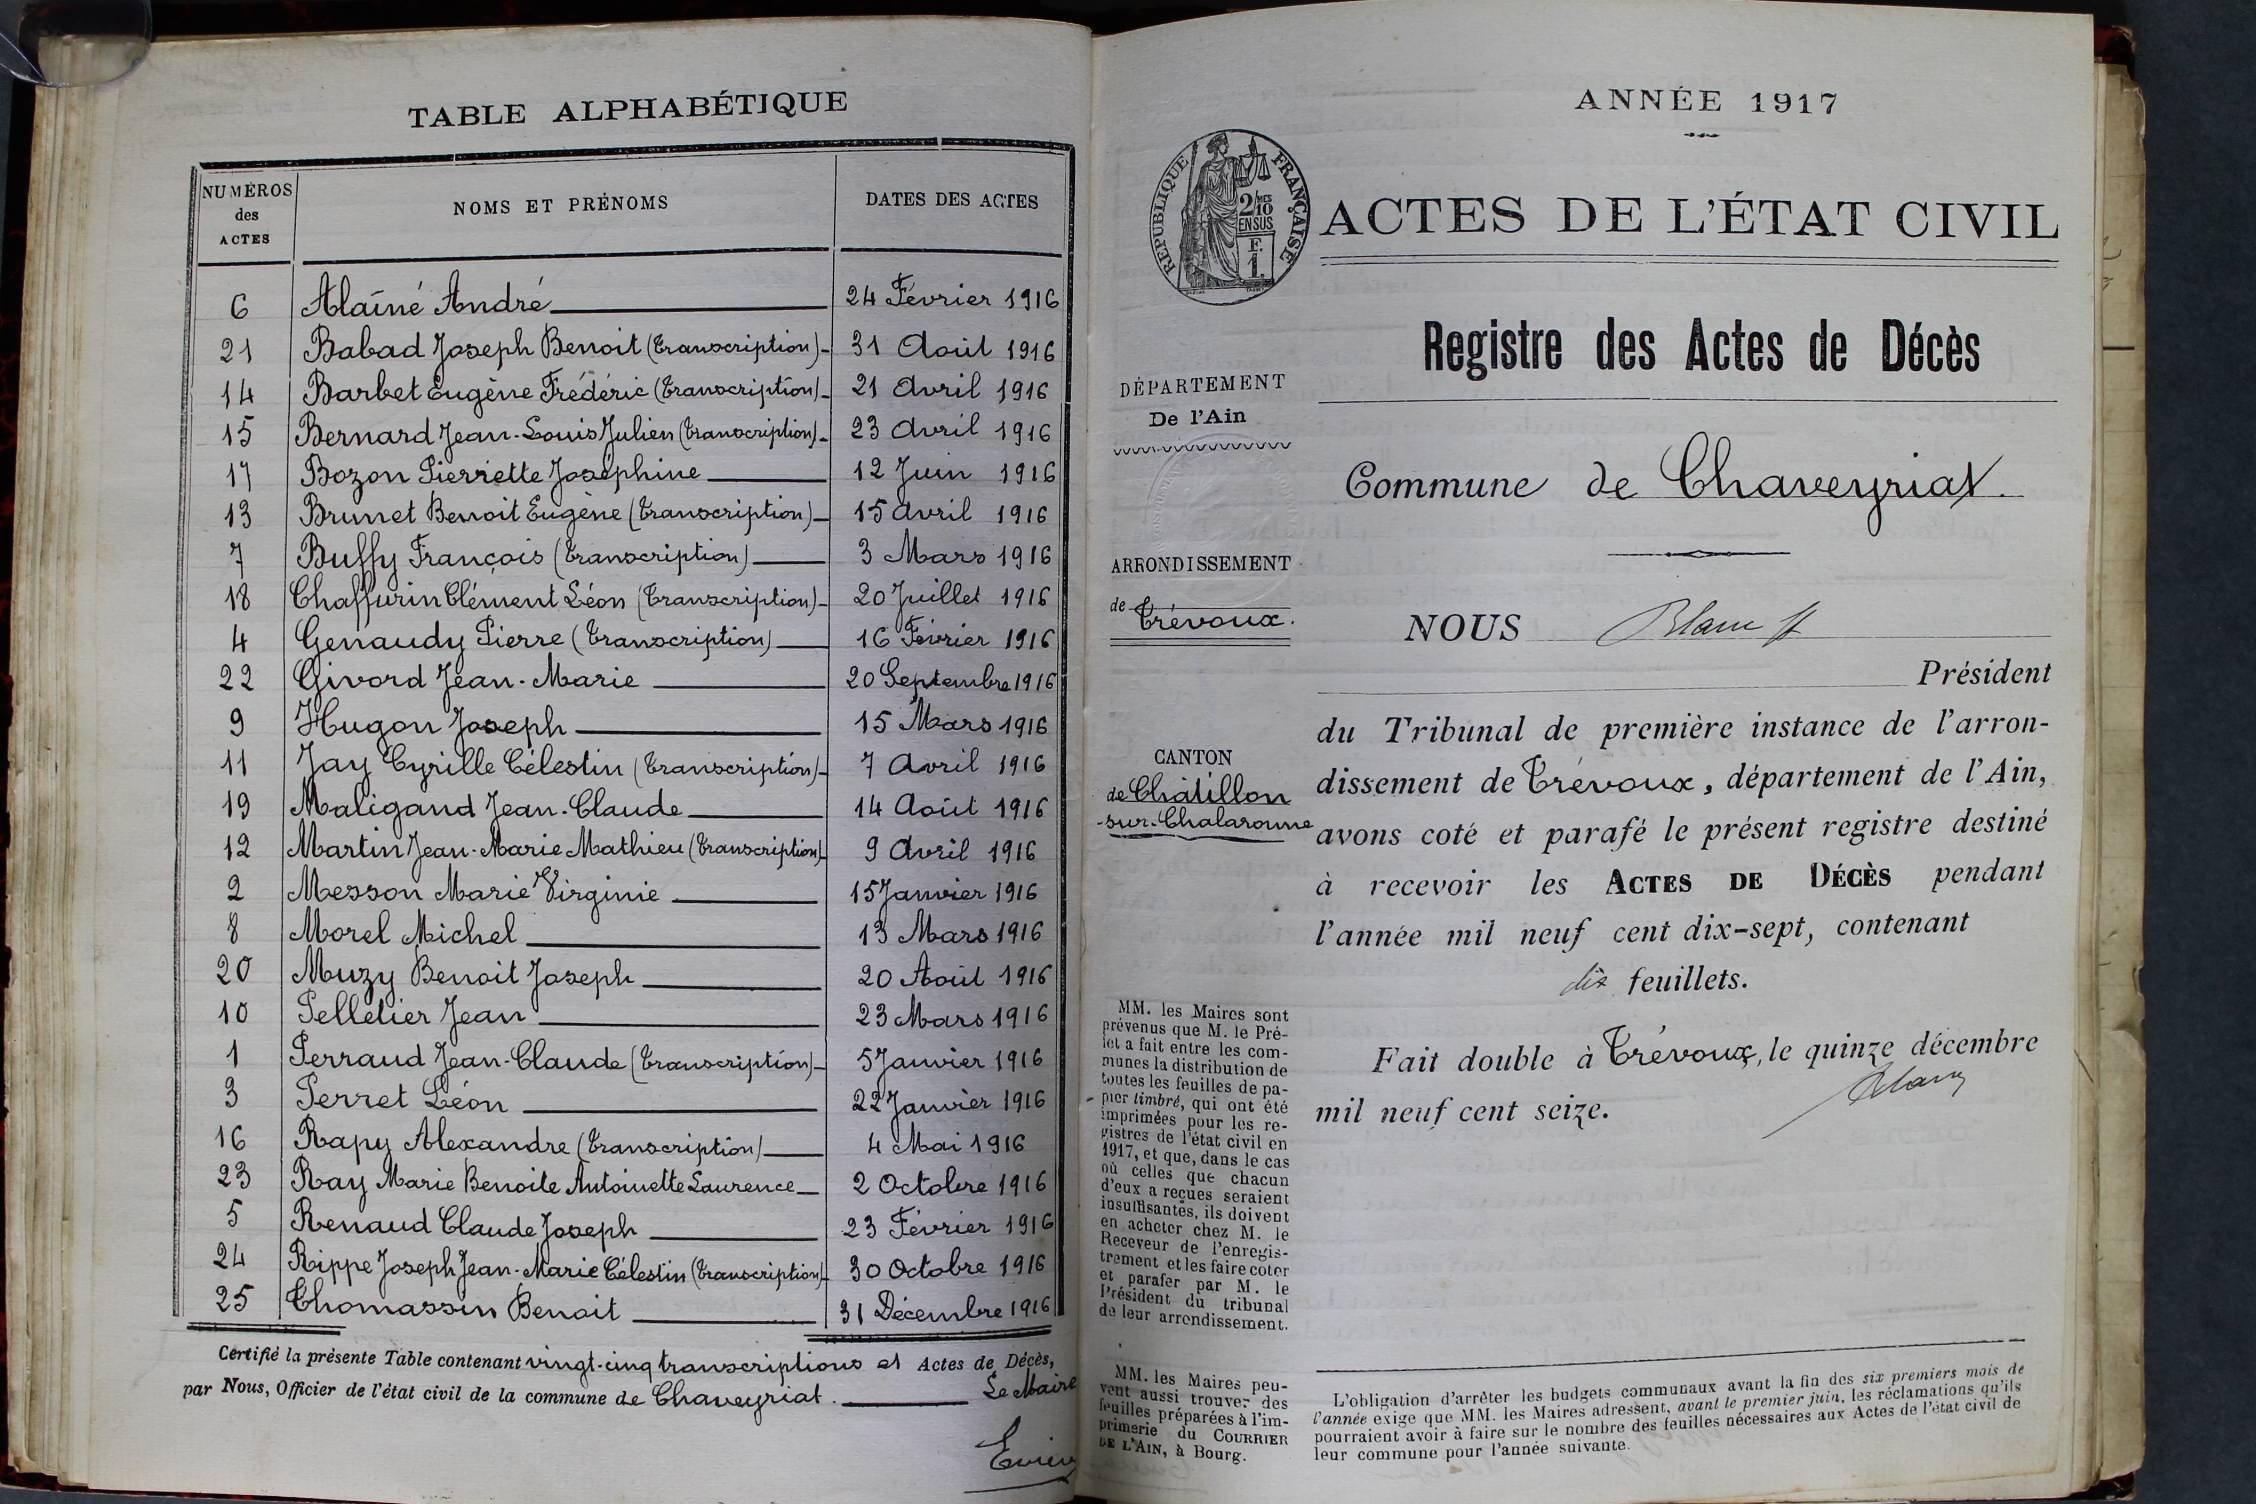 TABLE ALPHABÉTIQUE
NUMÉROS des ACTES NOMS ET PRÉNOMS DATES DES ACTES
6 Alaîné André 24 Février 1916
21 Babad Joseph Benoit (Transcription) 31 Août 1916
14 Barbet Eugène Frédéric (Transcription) 21 Avril 1916
15 Bernard Jean-Louis Julien (Transcription) 23 Avril 1916
17 Bozon Pierrette Joséphine 12 Juin 1916
13 Brunet Benoit Eugène (Transcription) 15 Avril 1916
7 Buffy François (Transcription) 3 Mars 1916
18 Chaffurin Clément Léon (Transcription) 20 Juillet 1916
4 Genaudy Pierre (Transcription) 16 Février 1916
22 Givord Jean-Marie 20 Septembre 1916
9 Hugon Joseph 15 Mars 1916
11 Jay Cyrille Célestin (Transcription) 7 Avril 1916
19 Maligand Jean-Claude 14 Août 1916
12 Martin Jean-Marie Mathieu (Transcription) 9 Avril 1916
2 Messon Marie Virginie 15 Janvier 1916
8 Morel Michel 13 Mars 1916
20 Muzy Benoit Joseph 20 Août 1916
10 Pelletier Jean 23 Mars 1916
1 Perraud Jean-Claude (Transcription) 5 Janvier 1916
3 Perret Léon 22 Janvier 1916
16 Rapy Alexandre (Transcription) 4 Mai 1916
23 Ray Marie Benoite Antoinette Laurence 2 Octobre 1916
5 Renaud Claude Joseph 23 Février 1916
24 Rippe Joseph Jean-Marie Célestin (Transcription) 30 Octobre 1916
25 Thomassin Benoit 31 Décembre 1916
Certifié la présente Table contenant vingt-cinq transcriptions et Actes de Décès,
par Nous, Officier de l'état civil de la commune de Chaveyriat. Le Maire
ANNÉE 1917
RÉPUBLIQUE FRANÇAISE
2/10 MES
EN SUS
F.
1.
ACTES DE L'ÉTAT CIVIL
Registre des Actes de Décès
DÉPARTEMENT
De l'Ain
Commune de Chaveyriat.
ARRONDISSEMENT
de Trévoux.
NOUS Blanc
Président
CANTON
de Châtillon
-sur-Chalaronne
du Tribunal de première instance de l'arron-
dissement de Trévoux, département de l'Ain,
avons coté et parafé le présent registre destiné
à recevoir les ACTES DE DÉCÈS pendant
l'année mil neuf cent dix-sept, contenant
dix feuillets.
Fait double à Trévoux, le quinze décembre
mil neuf cent seize.
Blanc
MM. les Maires sont
prévenus que M. le Pré-
fet a fait entre les com-
munes la distribution de
toutes les feuilles de pa-
pier timbré, qui ont été
imprimées pour les re-
gistres de l'état civil en
1917, et que, dans le cas
où celles que chacun
d'eux a reçues seraient
insuffisantes, ils doivent
en acheter chez M. le
Receveur de l'enregis-
trement et les faire coter
et parafer par M. le
Président du tribunal
de leur arrondissement.
MM. les Maires peu-
vent aussi trouver des
feuilles préparées à l'im-
primerie du COURRIER
DE L'AIN, à Bourg.
L'obligation d'arrêter les budgets communaux avant la fin des six premiers mois de
l'année exige que MM. les Maires adressent, avant le premier juin, les réclamations qu'ils
pourraient avoir à faire sur le nombre des feuilles nécessaires aux Actes de l'état civil de
leur commune pour l'année suivante.